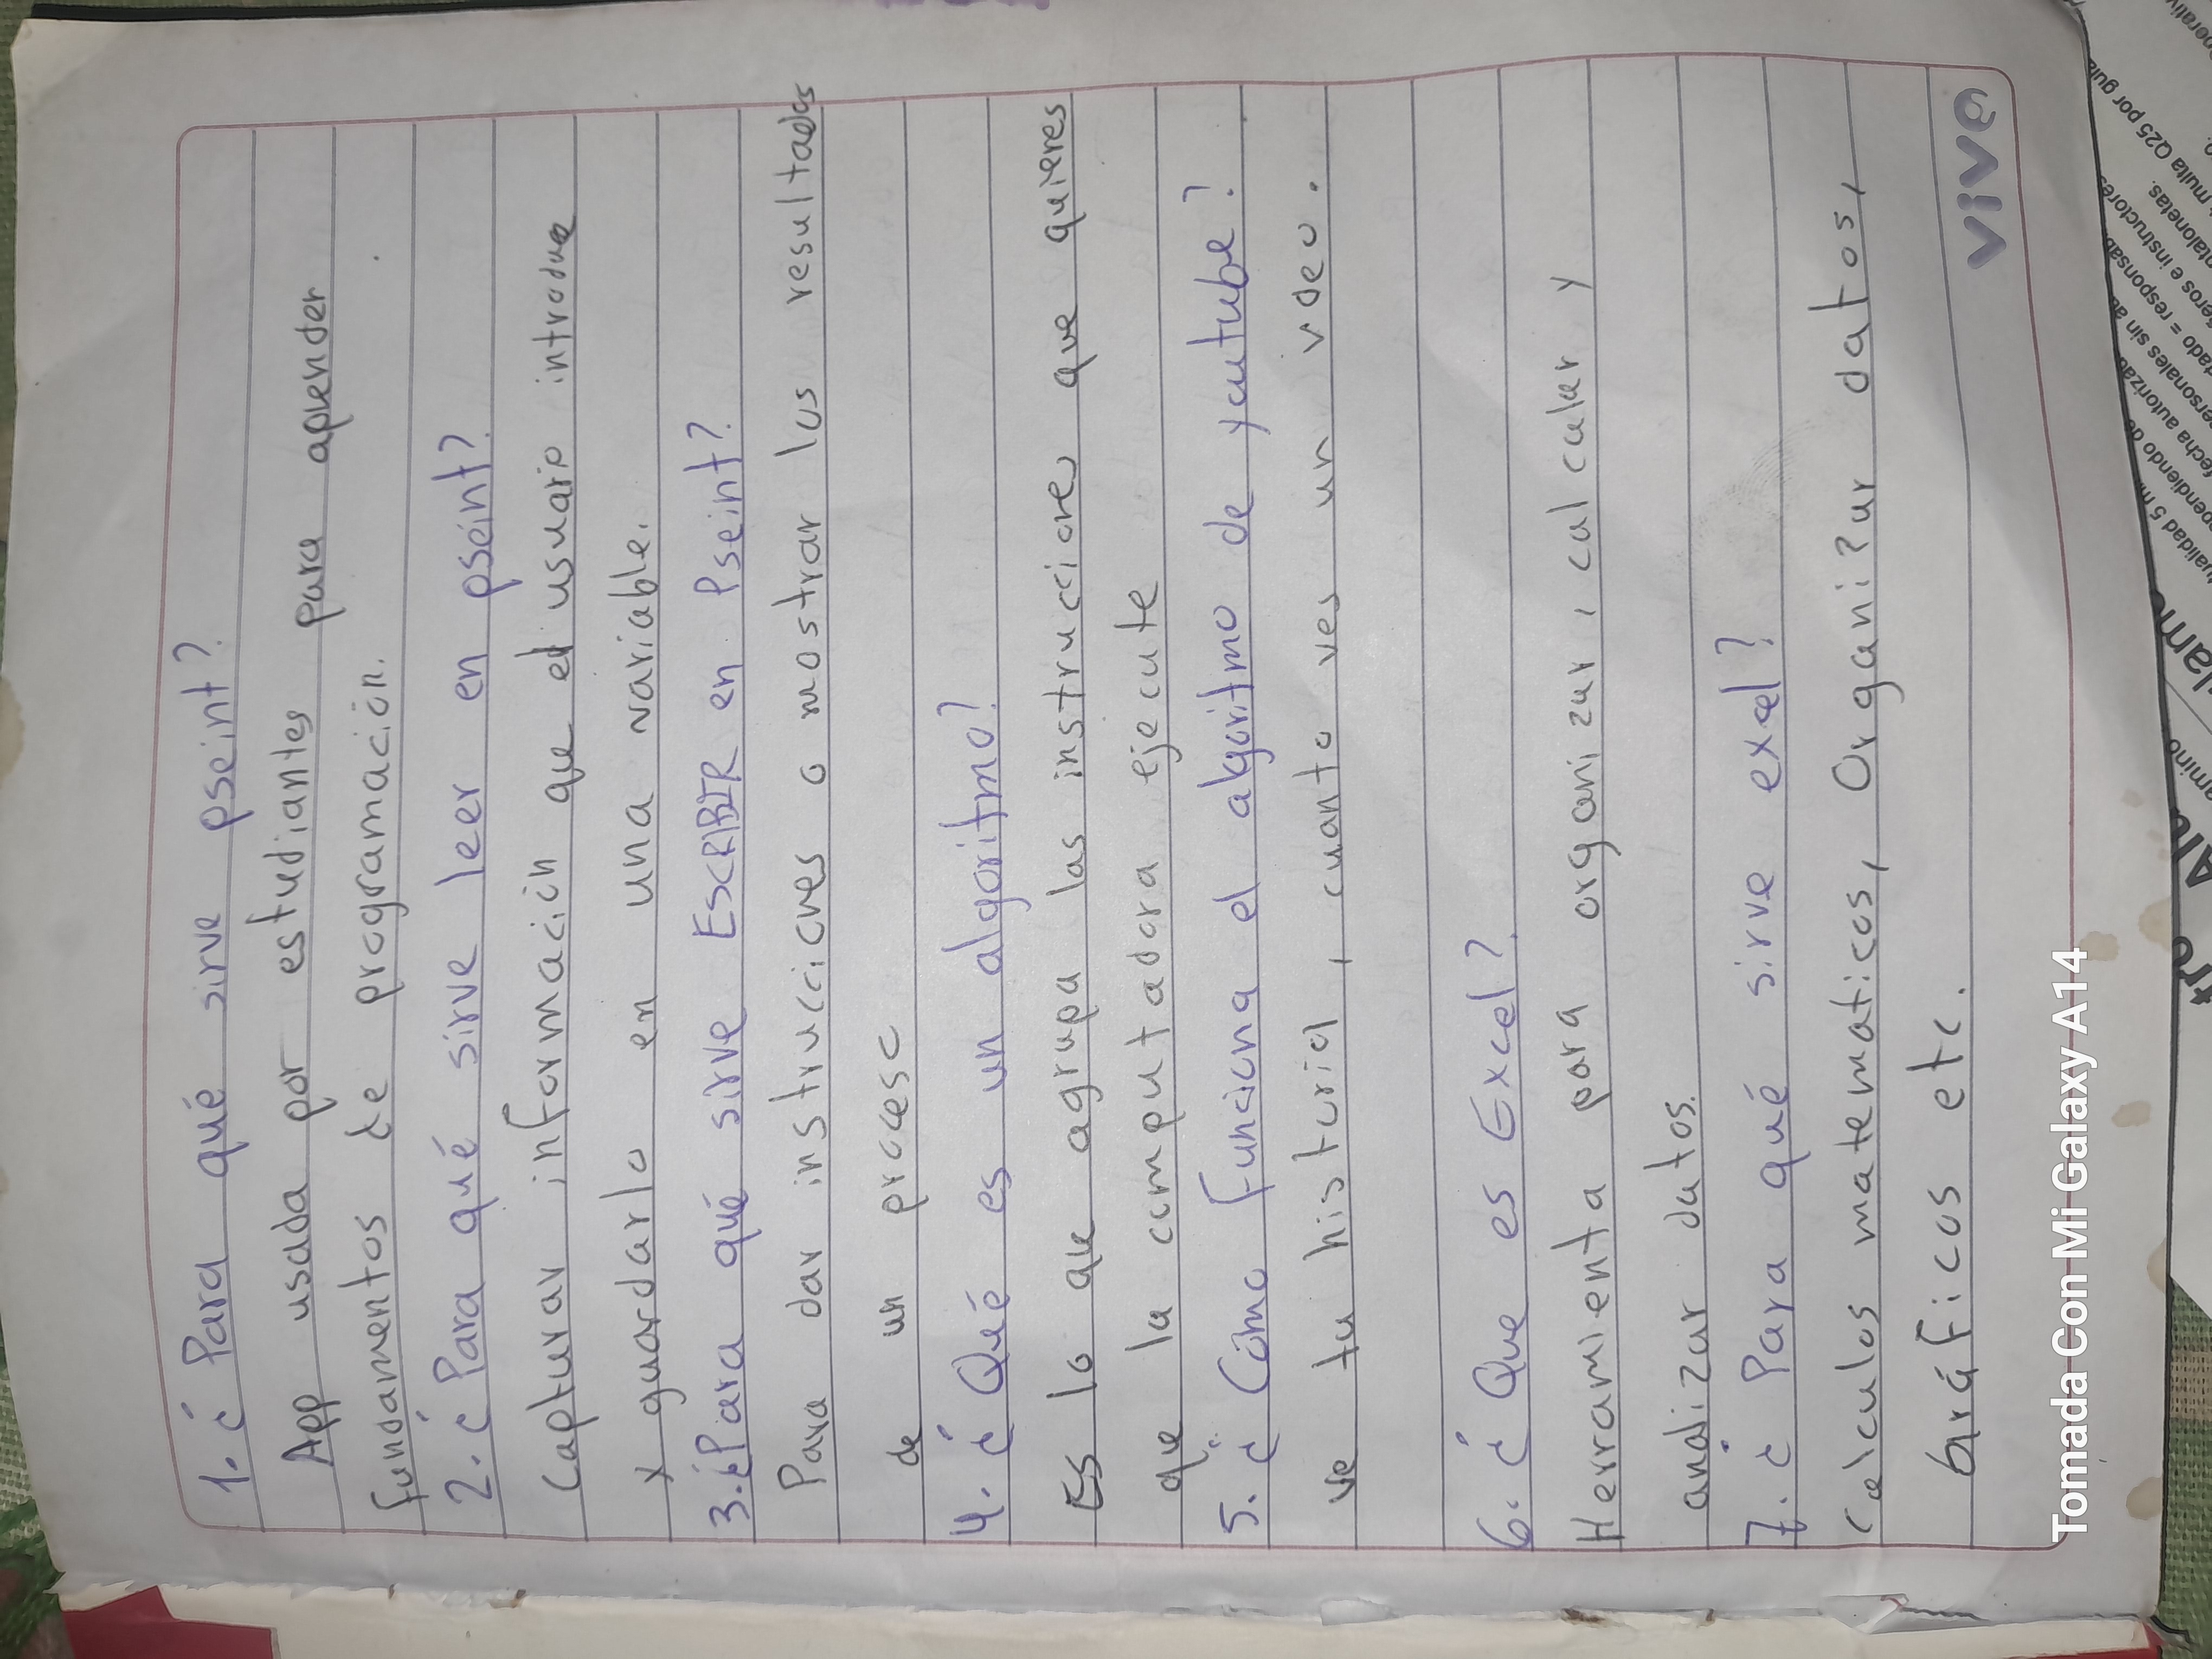 1. ¿ Para qué sirve pseint?
App usada por estudiantes para aprender
fundamentos de programación.
2. ¿ Para qué sirve leer en pseint?
Capturar información que el usuario introduce
y guardarlo en una variable.
3. ¿Para qué sirve ESCRIBIR en Pseint?
Para dar instrucciones o mostrar los resultados
de un proceso
4. ¿ Qué es un algoritmo?
Es lo que agrupa las instrucciones que quieres
que la computadora ejecute
5. ¿ Cómo funciona el algoritmo de youtube?
ve tu historial, cuanto ves un video.
6. ¿ Que es Excel?
Herramienta para organizar, calcular y
analizar datos.
7. ¿ Para qué sirve exel?
Calculos matematicos, Organizar datos,
gráficos etc.
vive
Tomada Con Mi Galaxy A14
multa Q25 por